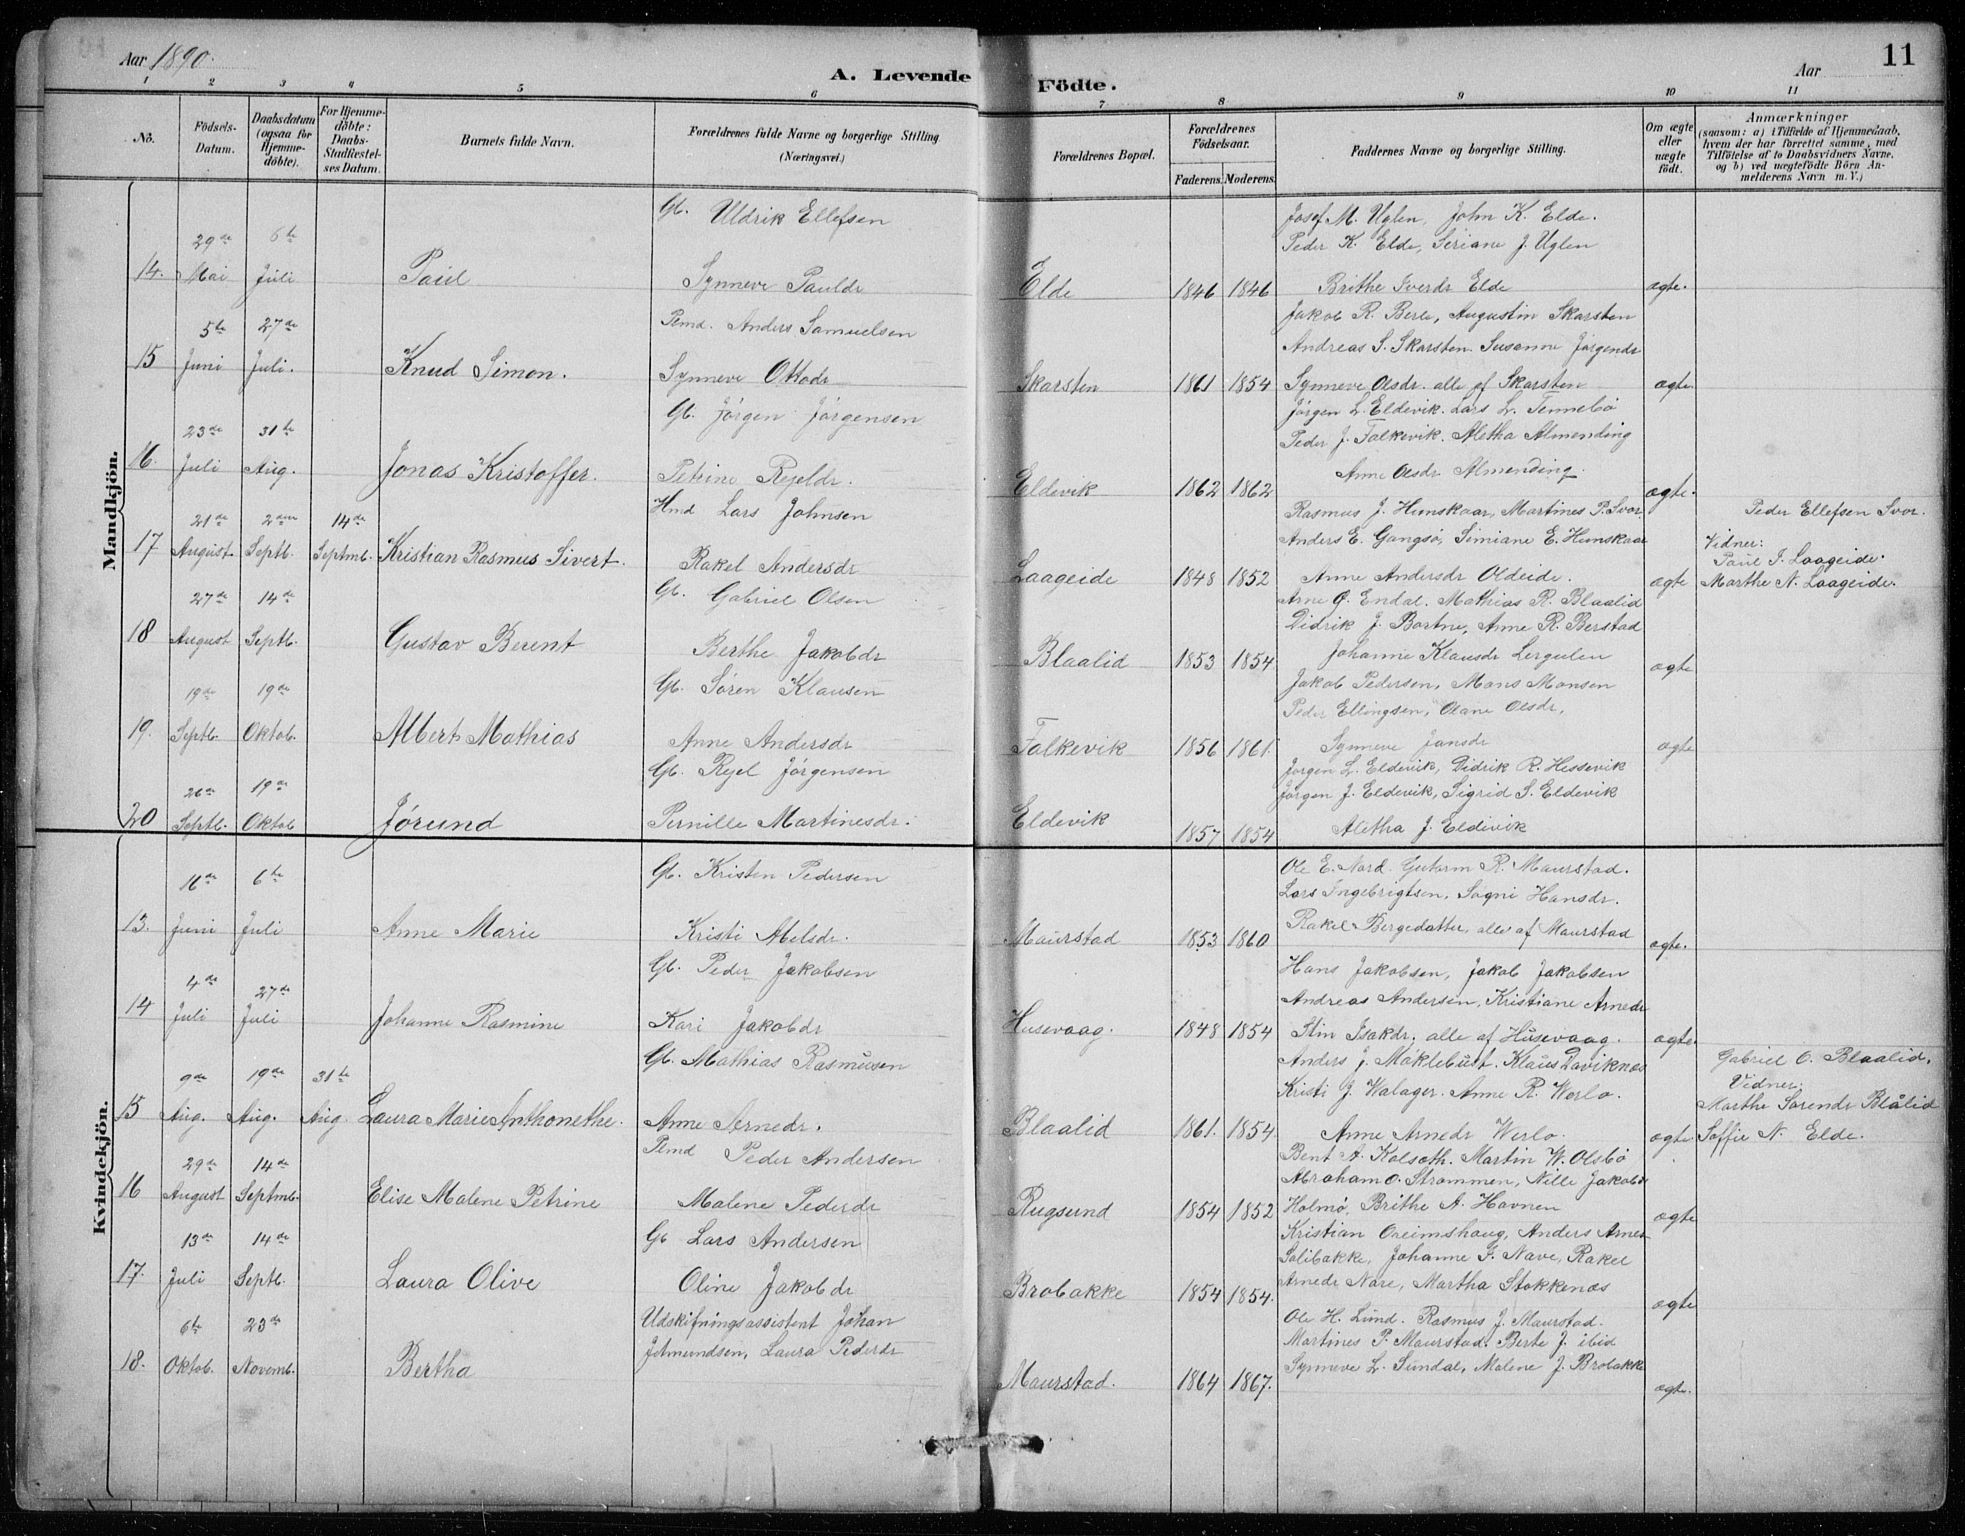 Aar 1890.
A. Levende Födte.
Aar
11
1 2 3 4 5 6 7 8 9 10 11
No.
Födsels-Datum.
Daabsdatum (ogsaa for Hjemme-döbte).
For Hjemme-döbte: Daabs-Stadfæstel-ses Datum.
Barnets fulde Navn.
Forældrenes fulde Navne og borgerlige Stilling. (Næringsvei.)
Forældrenes Bopæl.
Forældrenes Födselsaar.
Faderens. Moderens.
Faddernes Navne og borgerlige Stilling.
Om ægte eller uægte födt.
Anmærkninger
(saasom: a) i Tilfælde af Hjemmedaab, hvem der har forrettet samme, med Tilföielse af to Daabsvidners Navne, og b) ved uægtefödte Börn An-melderens Navn m. V.)
Mandkjön.
Gb. Uldrik Ellefsen
Josef M. Uglen, John K. Elde.
29de 6te
Peder K. Elde, Seriane J. Uglen
14. Mai Juli Paul Synneve Pauldr Elde 1846 1846 Brithe Iverdr Elde ægte.
5te 27de Pmd. Anders Samuelsen
Jakob R. Berle, Augustin Skarsten
Andreas S. Skarsten. Susanne Jörgendr
15 Juni Juli. Knud Simon. Synneve Ottodr Skarsten 1861 1854 Synneve Olsdr. alle pf Skarsten ægte
Gb. Jörgen Jörgensen
Jörgen L. Eldevik. Lars L. Tennebö
23de 31te
Peder J. Falkevik. Aletha Almending
16. Juli Aug. Jonas Kristoffer. Petrine Rejeldr. Eldevik 1862 1862 Anne Olsdr Almending. ægte.
21de 2den 14de Hmd Lars Johnsen
Rasmus J. Hunskaar, Martines P. Svor Peder Ellefsen Svor.
Anders E. Gangsö, Simiane E. Hunskaar Vidner:
17 August Septb. Septmb. Kristian Rasmus Sivert. Rakel Andersdr Laageide 1848 1852 Anne Andersdr Oldeide. ægte
Paul I. Laageide.
Marthe N. Laageide.
27de 14de Gb. Gabriel Olsen
Arne O. Endal. Mathias R. Blaalid
Didrik J. Bortne, Anne R. Berstad
18 August Septb. Gustav Berent Berthe Jakobdr Blaalid 1853 1854 Johanne Klausdr Lergulen ægte
19de 19de Gb. Sören Klausen
Jakob Pedersen, Mons Monsen
Peder Ellingsen, Olane Olsdr,
19. Septb. Oktob. Albert Mathias Anne Andersdr Falkevik 1856 1861. Synneve Jansdr ægte
26de 19de Gb. Rejel Jörgensen
Jorgen L. Eldevik, Didrik R. Hessevik
Jörgen J. Eldevik, Sigrid S. Eldevik
20 Septb. Oktob Jörund Pernille Martinesdr. Eldevik 1857 1854 Aletha J. Eldevik
Kvindekjön.
16de 6te Gb. Kristen Pedersen
Ole E. Nord. Gutorm R. Maurstad.
Lars Ingebrigtsen, Sogni Hansdr.
13. Juni Juli Anne Marie Kristi Melsdr. Maurstad 1853 1860 Rakel Bergedatter, alle af Maurstad ægte.
4de 27de Gb. Peder Jakobsen
Hans Jakobsen, Jakob Jakobsen
Andreas Andersen, Kristiane Arnedr
14 Juli Juli Johanne Rasmine Kari Jakobdr Husevaag. 1848 1854 Stin Isakdr, alle af Husevaag. ægte.
9de 19de 31te Gb. Mathias Rasmusen
Anders J. Maklebust. Klaus Daviknæs Gabriel O. Blaalid.
Kristi J. Walager. Anne R. Werlo. Vidner:
15 Aug. Aug. Aug. Laura Marie Anthonethe. Anne Arnedr. Blaalid 1861. 1854. Anne Arnedr Werlo. ægte
Marthe Sorendr Blålid
Soffie N. Elde.
29de 14de Pmd Peder Andersen
Bent A. Kolseth. Martin W. Olsbö
Abraham O. Strommen, Nille Jakobdr
16 August Septmb. Elise Malene Petrine Malene Pederdr Rugsund 1854 1852 Holmö, Brithe A. Havnen ægte
13de 14de Gb Lars Andersen
Kristian Oreimshaug, Anders Arnes
Solibakke, Johanne J. Nave, Rakel
17. Juli Septb. Laura Olive Oline Jakobdr Brobakke 1854 1854. Arnedr Nore, Martha Stokkenæs ægte
6te 23de Udskifningsassistent Johan Jetmundsen, Laura Pederdr
Ole H. Lund. Rasmus J. Maurstad.
Martines P. Maurstad. Berte J. ibid
18. Oktob. Novemb. Bertha Maurstad. 1864 1867. Synneve L. Sundal, Malene J. Brobakke ægte.